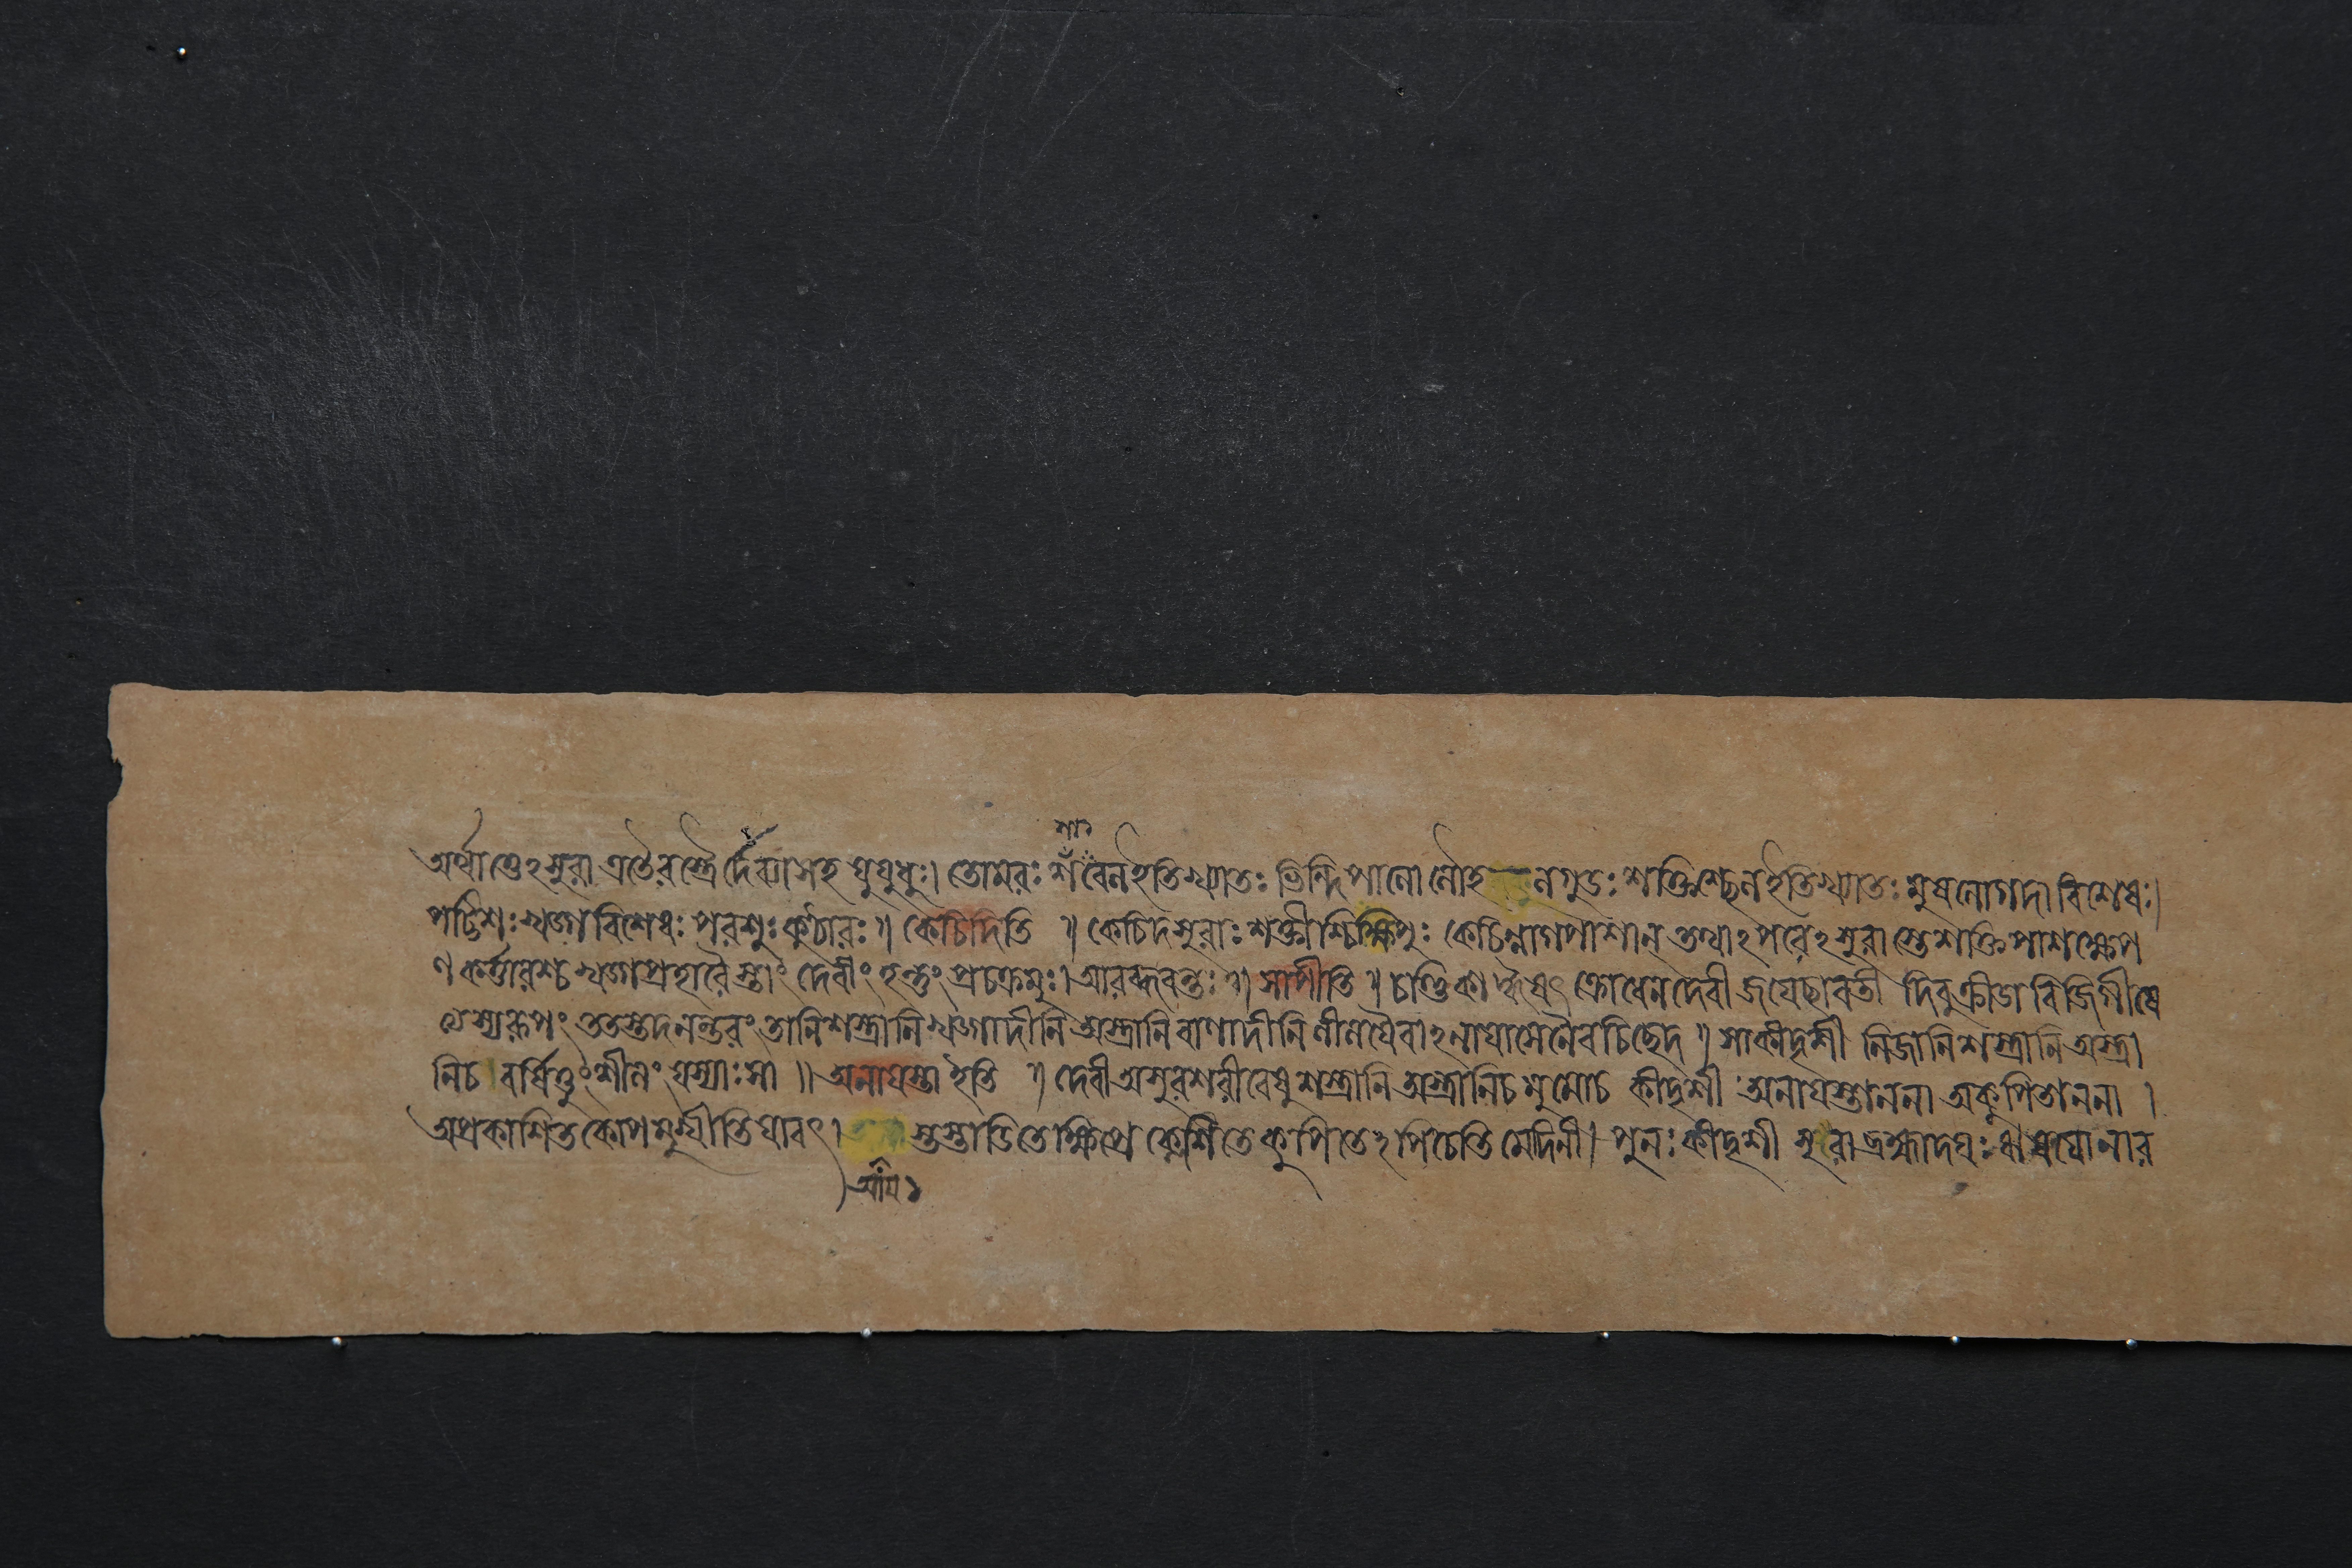 অর্থাত্তেঽসুরা এতৈরস্ত্রৈর্দেব্যা সহ যুযুধুঃ। তোমরঃ ইতি খ্যাতঃ ভিন্দিপালো লৌহ লগুডঃ শক্তিঃ ইতি খ্যাতঃ মুষলো গদাবিশেষঃ।
পট্টিশঃ খড্গবিশেষঃ পরশুঃ কুঠারঃ॥ কেচিদিতি ॥ কেচিদসুরাঃ শক্তীশ্চিক্ষিপুঃ কেচিন্নাগপাশান্ তথাঽপরেঽসুরাস্তে শক্তিপাশক্ষেপ
ণকর্ত্তারশ্চ খড্গপ্রহারৈস্তাং দেবীং হন্তুং প্রচক্রমুঃ। আরব্ধবন্তঃ॥ সাপীতি॥ চণ্ডিকা ক্রোধেন দেবী জয়েছাবতী দিবু ক্রীডা বিজিগীষে
ত্যস্যরূপং ততস্তদনন্তরং তানি শস্ত্রানি খড্গাদীনি অস্ত্রানি বাণাদীনি লীলয়ৈবাঽনায়াসেনৈব চিছেদ॥ সা কীদৃশী নিজানি শস্ত্রানি অস্ত্রা
নি চ বর্ষিতুং শীলং যস্যাঃ সা॥ অনায়স্তা ইতি ॥ দেবী অসুরশরীরেষু শস্ত্রানি অস্ত্রানি চ মুমোচ কীদৃশী অনায়স্তাননা অকুপিতাননা ।
অপ্রকাশিতকোপমুখীতি যাবৎ। স্তস্তাডিতে ক্ষিপ্তে ক্লেশিতে কুপিতেঽপি চেতি মেদিনী। পুনঃ কীদৃশী সুরা ব্রহ্মাদয়ঃ ঋষয়ো নার